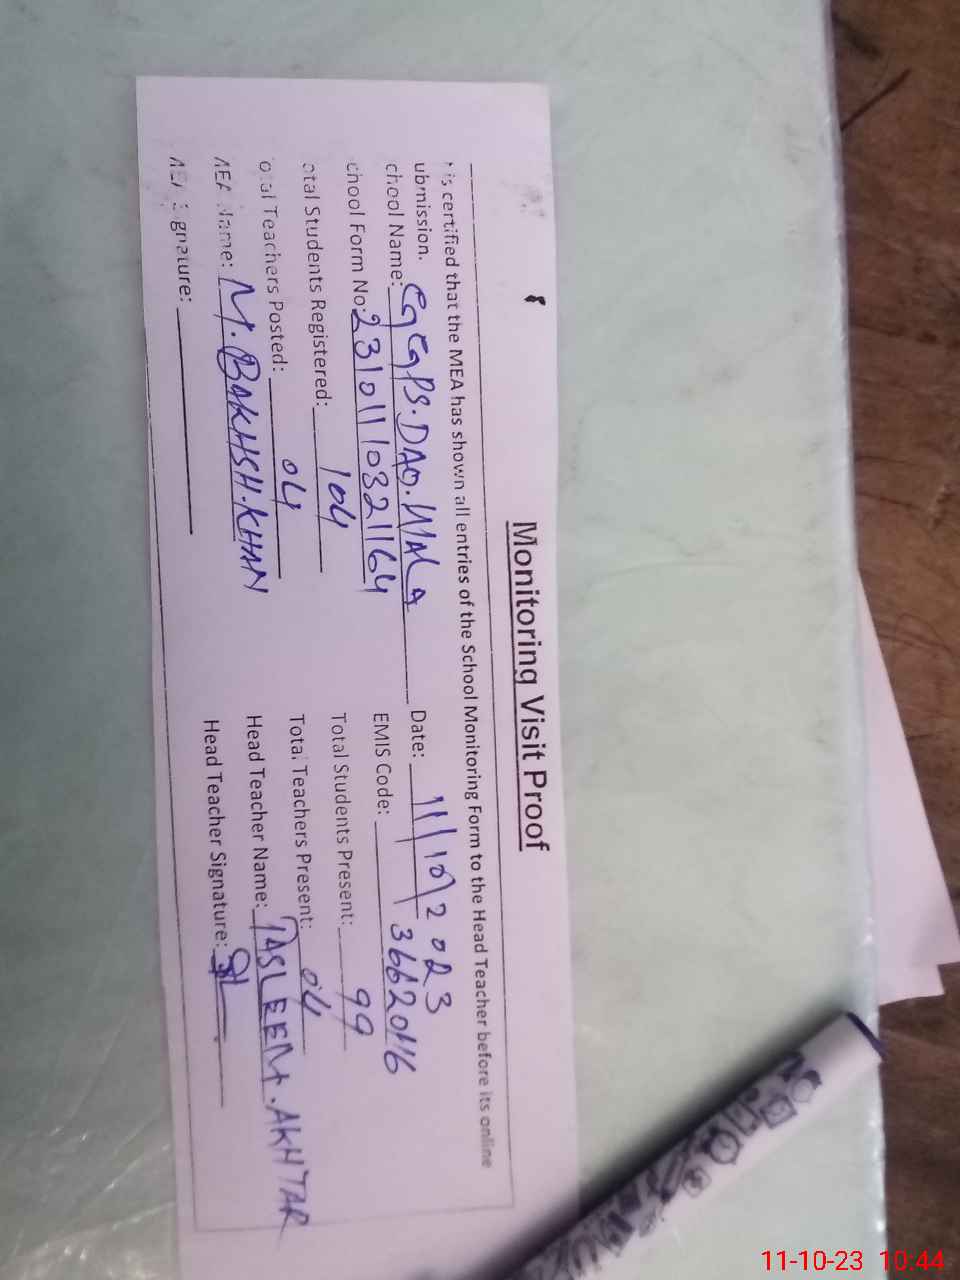 Monitoring Visit Proof
is certified that the MEA has shown all entries of the School Monitoring Form to the Head Teacher before its online
ubmission.
chool Name: GGPS. DAO. WALA Date: 11/10/2023
chool Form No: 23101110321164 EMIS Code: 36620116
otal Students Registered: 104 Total Students Present: 99
otal Teachers Posted: 04 Total Teachers Present: 04
MEA Name: M. BAKHSH. KHAN Head Teacher Name: TASLEEM. AKHTAR
MEA Signature: Head Teacher Signature:
11-10-23 10:44